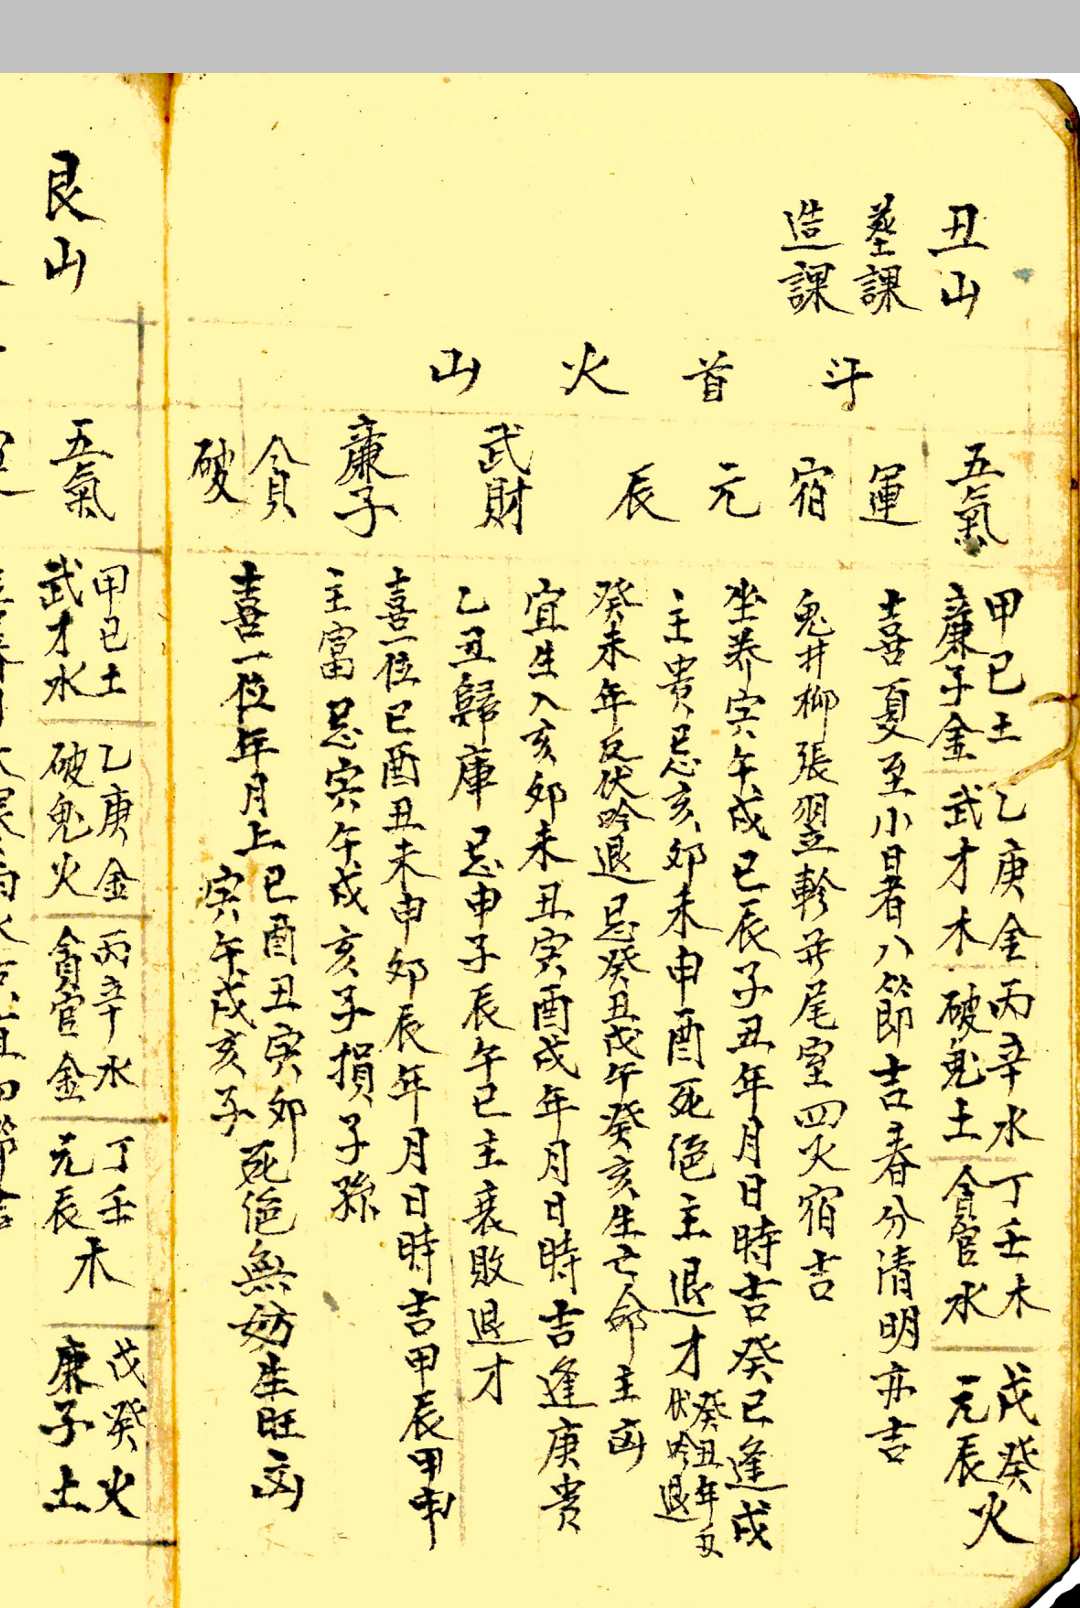 丑山
墓課
造課
斗首火山
五氣
甲己土 乙庚金 丙辛水 丁壬木 戊癸火
廉子金 武才木 破鬼土 貪官水 元辰
運
喜夏至小暑八節吉春分清明亦吉
宿
鬼井柳張翌軫并尾室四火宿吉
元辰
坐养寅午戌巳辰子丑年月日時吉癸巳逢戌
主贵忌亥卯未申酉死絕主退才癸丑年丑
伏吟退
癸未年反伏吟退忌癸丑戊午癸亥生亡命主凶
武財
宜生入亥卯未丑寅酉戌年月日時吉逢庚贵
乙丑歸庫忌申子辰午巳主衰敗退才
廉子
喜一位巳酉丑未申卯辰年月日時吉甲辰甲申
主富忌寅午戌亥子損子孫
貪
破
喜一位年月上巳酉丑寅卯死絕無妨生旺凶
寅午戌亥子
艮山
五氣
甲己土 乙庚金 丙辛水 丁壬木 戊癸火
武才水 破鬼火 貪官金 元辰 廉子土